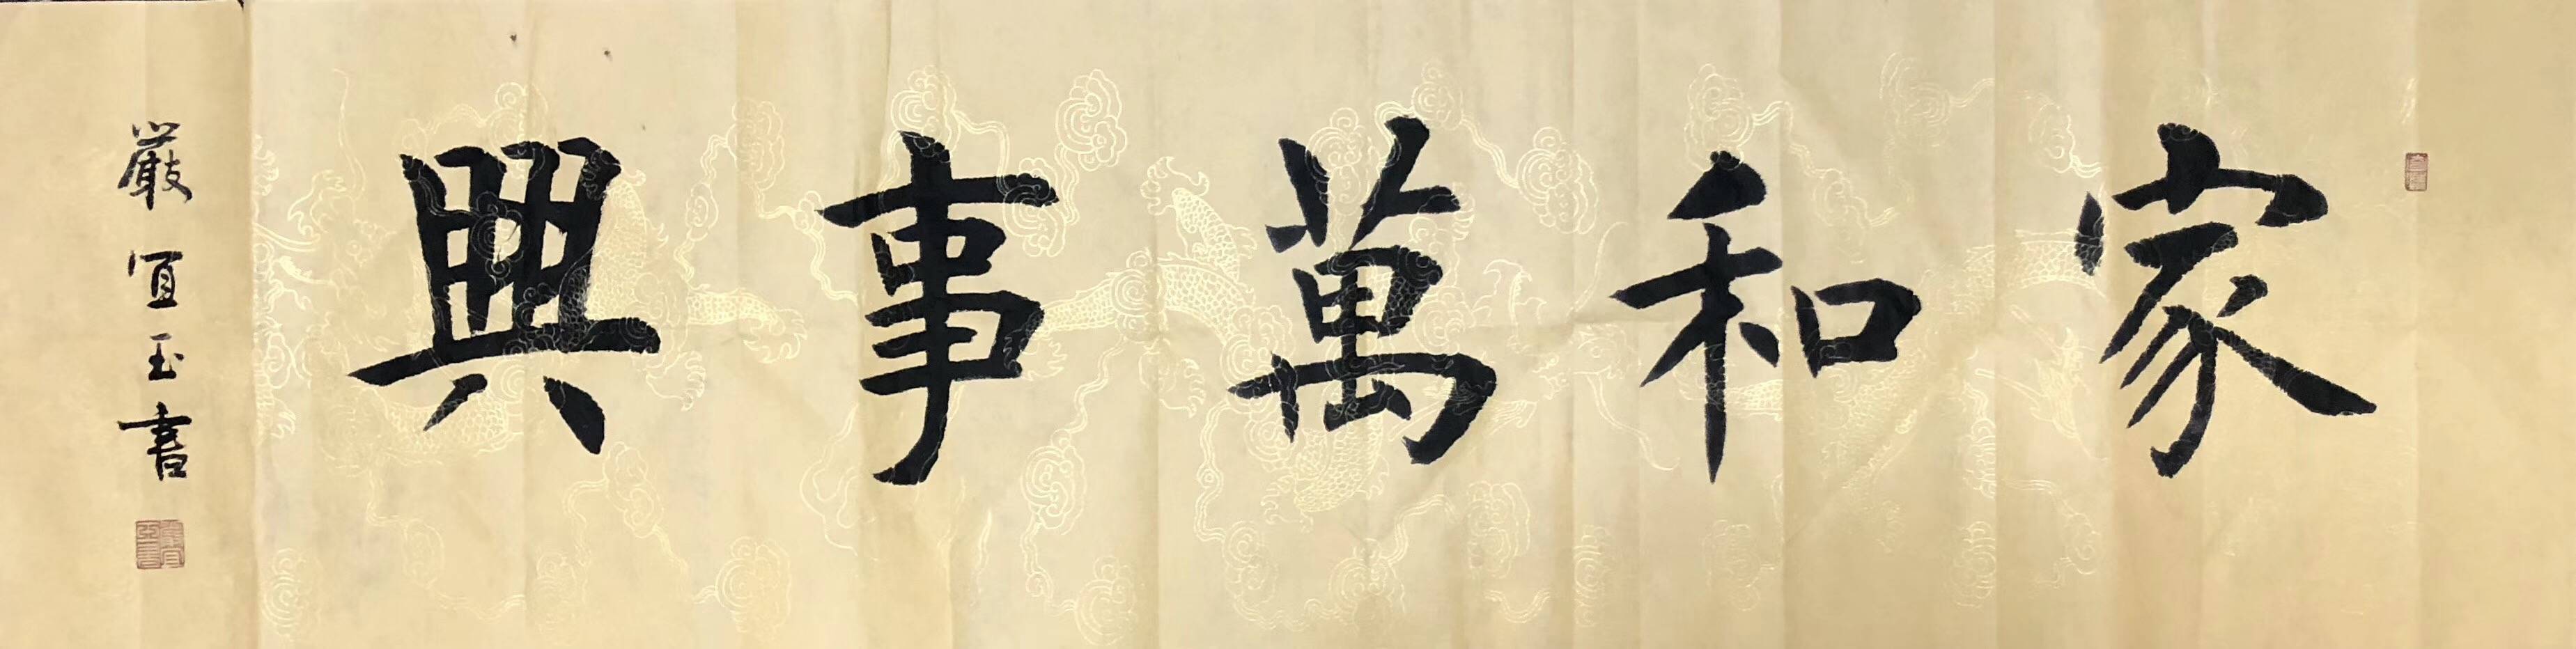 家和萬事興
嚴宜玉書